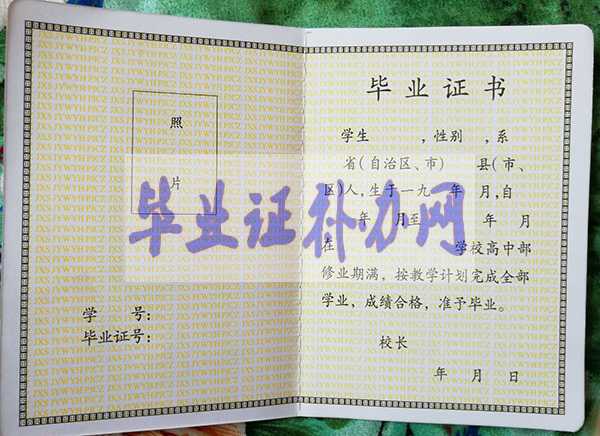 照
片
学 号：
毕业证号：
毕业证书
学生 ，性别 ，系
省（自治区、市） 县（市、
区）人，生于一九 年 月，自
年 月至 年 月
在 学校高中部
修业期满，按教学计划完成全部
学业，成绩合格，准予毕业。
校长
年 月 日
毕业证补办网